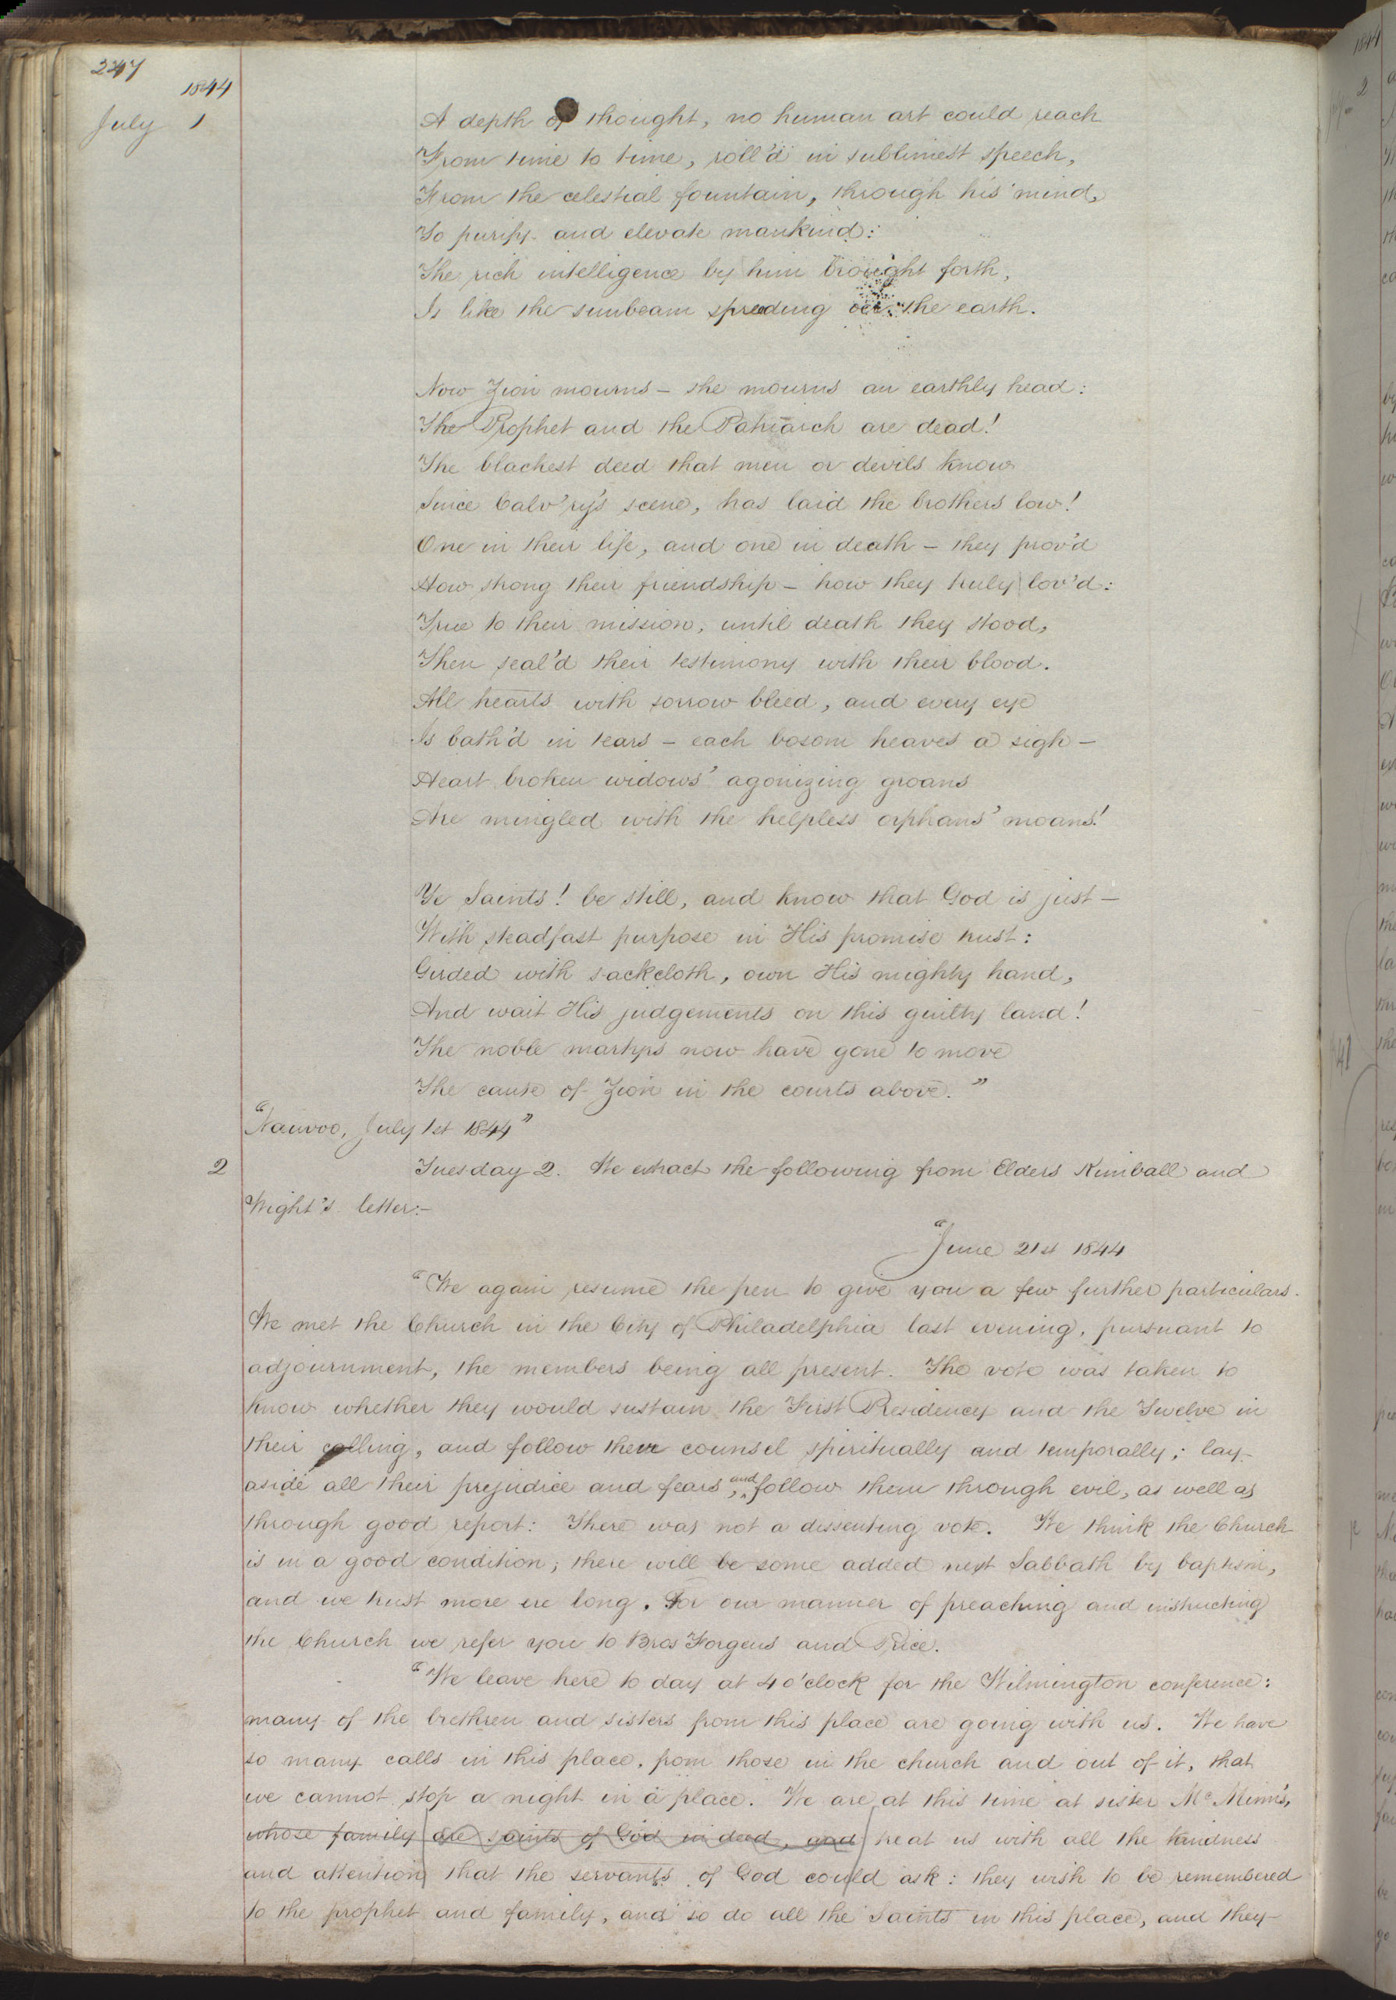 247
1844
July 1
A depth of thought, no human art could reach
From time to time, roll'd in sublimest speech,
From the celestial fountain, through his mind,
To purify and elevate mankind:
The rich intelligence by him brought forth,
Is like the sunbeam spreading o'er the earth.
Now Zion mourns – she mourns an earthly head:
The Prophet and the Patriarch are dead!
The blackest deed that men or devils know
Since Calv'ry's scene, has laid the brothers low!
One in their life, and one in death – they prov'd
How strong their friendship – how they truly lov'd:
True to their mission, until death they stood,
Then seal'd their testimony with their blood.
All hearts with sorrow bleed, and every eye
Is bath'd in tears – each bosom heaves a sigh –
Heart broken widows' agonizing groans
Are mingled with the helpless orphans' moans!
Ye Saints! be still, and know that God is just –
With steadfast purpose in His promise trust:
Girded with sackcloth, own His mighty hand,
And wait His judgements on this guilty land!
The noble martyrs now have gone to move
The cause of Zion in the courts above."
"Nauvoo, July 1st 1844"
2 Tuesday 2. We extract the following from Elders Kimball and
Wight's letter:–
"June 21st 1844
"We again resume the pen to give you a few further particulars.
We met the Church in the City of Philadelphia last evening, pursuant to
adjournment, the members being all present. The vote was taken to
know whether they would sustain the First Presidency and the Twelve in
their calling, and follow their counsel spiritually and temporally; lay
aside all their prejudice and fears, and follow them through evil, as well as
through good report: There was not a dissenting vote. We think the Church
is in a good condition; there will be some added next Sabbath by baptism,
and we trust more ere long. For our manner of preaching and instructing
the Church we refer you to Bros Forgeus and Price.
"We leave here to day at 4 o'clock for the Wilmington conference:
many of the brethren and sisters from this place are going with us. We have
so many calls in this place, from those in the church and out of it, that
we cannot stop a night in a place. We are at this time at sister McMinn's,
whose family are saints of God in deed, and treat us with all the kindness
and attention that the servants of God could ask: they wish to be remembered
to the prophet and family, and so do all the Saints in this place, and they